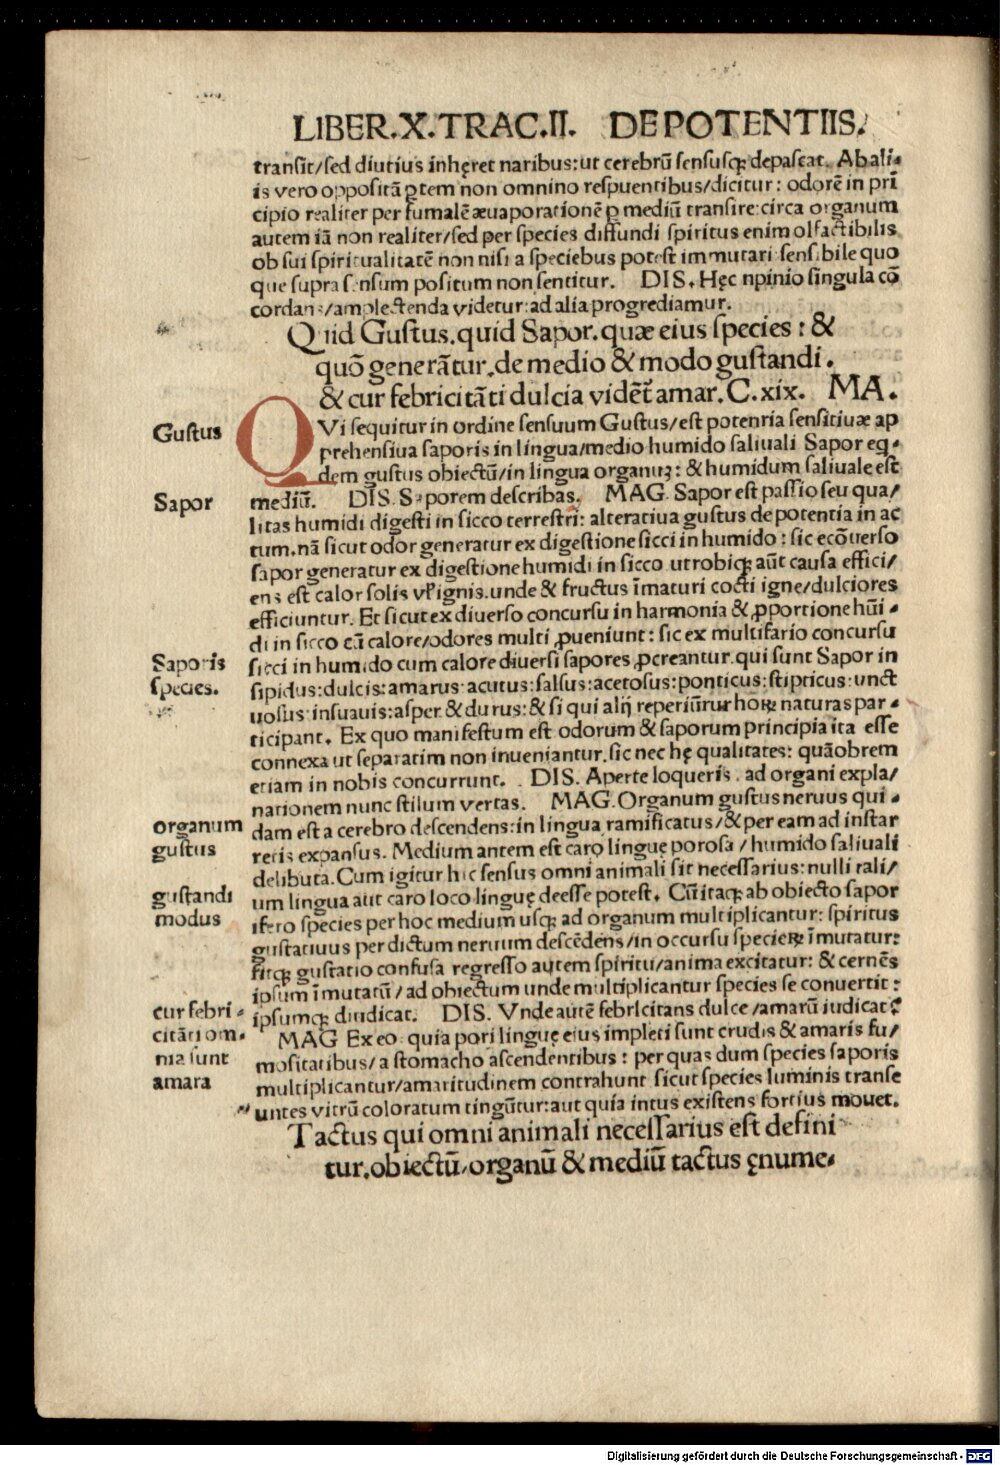 LIBER.X.TRAC.II. DE POTENTIIS.
transit/sed diutius inhęret naribus:ut cerebrū sensusqꝫ depascat. Ab ali⸗
is vero oppositā ꝑtem non omnino respuentibus/dicitur: odorē in pri
cipio realiter per fumalē æuaporationē ꝑ mediū transire:circa organum
autem iā non realiter/sed per species diffundi spiritus enim olfactibilis
ob sui spiritualitatē non nisi a speciebus potest immutari sensibile quo
que supra sensum positum non sentitur. DIS. Hęc npinio singula cō
cordans/amplectenda videtur:ad alia progrediamur.
Quid Gustus.quid Sapor.quæ eius species: &
quō generātur.de medio & modo gustandi.
& cur febricitāti dulcia vidēt̄ amar. C.xix. MA.
Gustus
QVi sequitur in ordine sensuum Gustus/est potentia sensitiuæ ap
prehensiua saporis in lingua/medio humido saliuali Sapor eq⸗
dem gustus obiectū/in lingua organuꝫ: & humidum saliuale est
Sapor
mediū. DIS. Saporem describas. MAG. Sapor est passio seu qua/
litas humidi digesti in sicco terrestri: alteratiua gustus de potentia in ac
tum.nā sicut odor generatur ex digestione sicci in humido: sic ecōuerso
sapor generatur ex digestione humidi in sicco utrobiqꝫ aūt causa effici/
ens est calor solis vꝉ ignis.unde & fructus īmaturi cocti igne/dulciores
efficiuntur. Et sicut ex diuerso concursu in harmonia & ꝓportione hūi⸗
di in sicco cū calore/odores multi ꝓueniunt: sic ex multifario concursu
Saporis
species.
sicci in humido cum calore diuersi sapores ꝓcreantur.qui sunt Sapor in
sipidus:dulcis:amarus:acutus:salsus:acetosus:ponticus:stipticus:unct
uosus:insuauis:asper & durus:& si qui alij reperiūtur horꝝ naturas par⸗
ticipant. Ex quo manifestum est odorum & saporum principia ita esse
connexa ut separatim non inueniantur.sic nec hę qualitates: quāobrem
etiam in nobis concurrunt. DIS. Aperte loqueris. ad organi expla/
nationem nunc stilum vertas. MAG. Organum gustus neruus qui⸗
organum
gustus
dam est a cerebro descendens:in lingua ramificatus/& per eam ad instar
retis expansus. Medium antem est caro linguę porosa/humido saliuali
delibuta.Cum igitur hic sensus omni animali sit necessarius:nulli tali/
gustandi
modus
um lingua aut caro loco linguę deesse potest. Cū itaqꝫ ab obiecto sapor
ifero species per hoc medium usqꝫ ad organum multiplicantur: spiritus
gustatiuus per dictum neruum descēdens/in occursu specierꝝ īmutatur:
fitqꝫ gustatio confusa regresso autem spiritu/anima excitatur: & cernēs
ipsum īmutatū/ad obiectum unde multiplicantur species se conuertit:
cur febri⸗
citāti om⸗
nia sunt
amara
ipsumqꝫ diiudicat. DIS. Vnde autē febricitans dulce/amarū iudicat?
MAG Ex eo quia pori linguę eius impleti sunt crudis & amaris fu/
mositatibus/a stomacho ascendentibus: per quas dum species saporis
multiplicantur/amaritudinem contrahunt sicut species luminis transe
untes vitrū coloratum tingūtur:aut quia intus existens fortius mouet.
Tactus qui omni animali necessarius est defini
tur.obiectū.organū & mediū tactus ęnume⸗
Digitalisierung gefördert durch die Deutsche Forschungsgemeinschaft - DFG